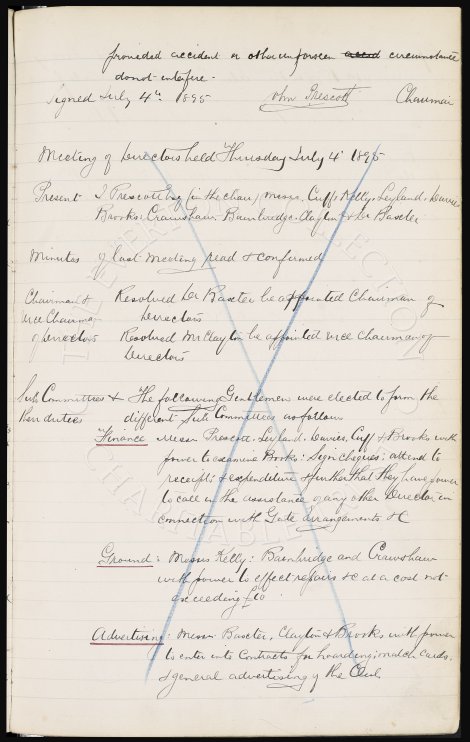 provided accident or other unforseen circumstance
do not interfere -
Signed July 4th 1895 John Prescott Chairman
Meeting of Directors held Thursday July 4th 1895
Present J Prescott Esq (in the chair) Messrs. Cuff, Kelly, Leyland, Davies
Brooks, Crawshaw Bainbridge, Clayton & Dr Baxter
Minutes of last meeting read & confirmed
Chairman & Resolved Dr Baxter be appointed Chairman of
Vice Chairman Directors
of Directors Resolved Mr Clayton be appointed vice Chairman of
Directors
Sub Committees & The following Gentlemen were elected to form the
their duties different Sub Committees as follows
Finance Messrs Prescott, Leyland, Davies, Cuff & Brooks with
power to examine Books: Sign cheques: attend to
receipts & expenditure & further that they have power
to call in the assistance of any other Director in
connection with Gate arrangements &c
Ground: Messrs Kelly: Bainbridge and Crawshaw
with power to effect repairs &c at a cost not
exceeding £10
Advertising: Messrs Baxter, Clayton & Brooks with power
to enter into Contracts for hoarding: match cards.
& general advertising of the Club.